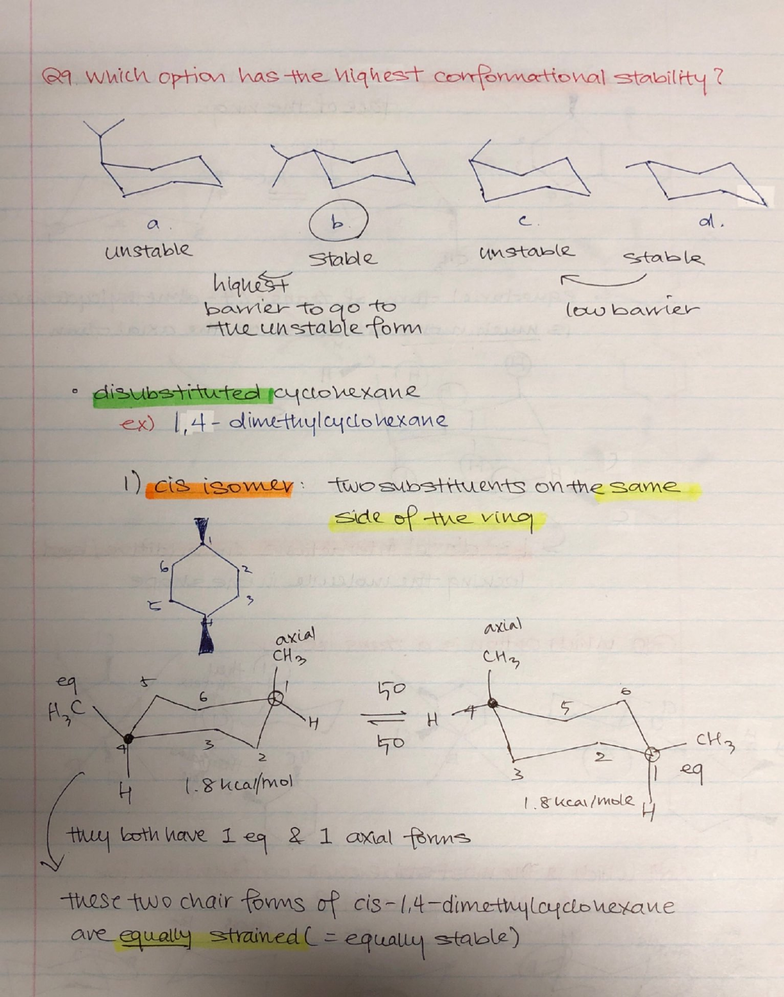 Q9. Which option has the highest conformational stability?
a. b. c. d.
unstable stable unstable stable
highest
barrier to go to
the unstable form
low barrier
• disubstituted cyclohexane
ex) 1,4-dimethylcyclohexane
1) cis isomer: two substituents on the same
side of the ring
1
6 2
5 3
4
axial
CH3
eq
H3C
5 6 1
H
4 3 2
H
1.8 kcal/mol
50
50
axial
CH3
H 4 5 6
3 2 1
CH3
eq
H
1.8 kcal/mole
they both have 1 eq & 1 axial forms
these two chair forms of cis-1,4-dimethylcyclohexane
are equally strained (= equally stable)